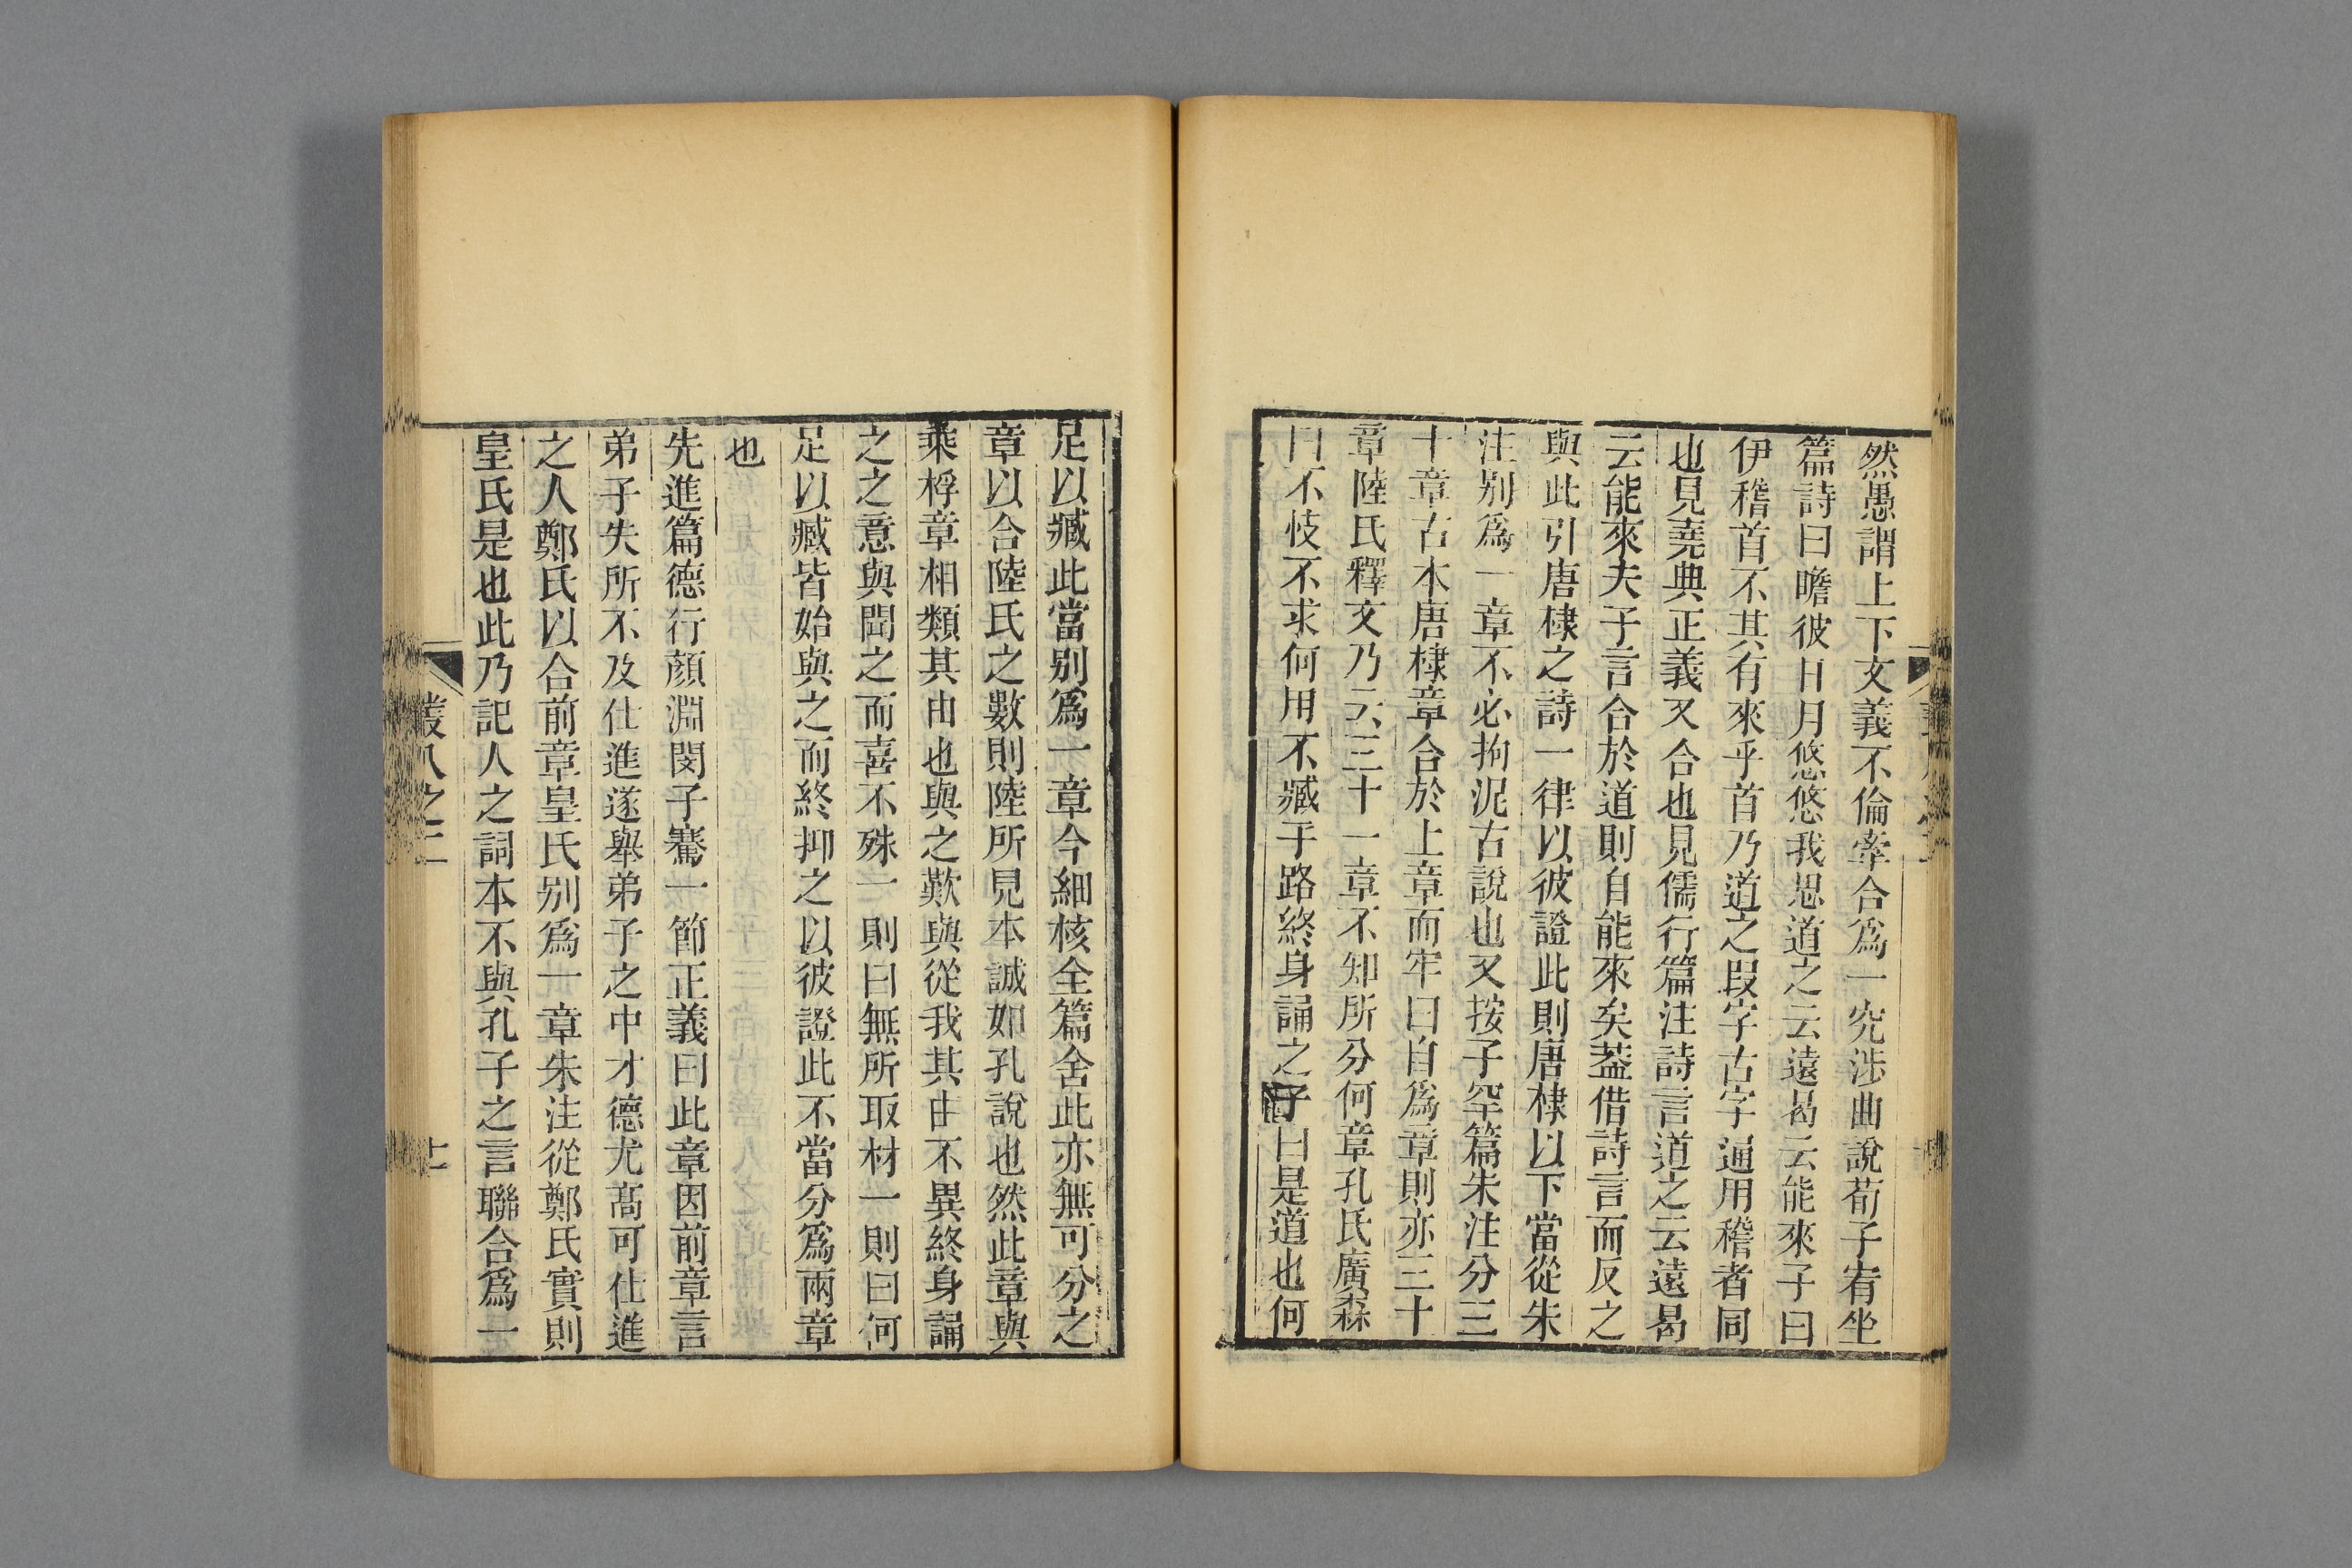 然愚謂上下文義不倫牽合爲一究涉曲說荀子宥坐
篇詩曰瞻彼日月悠悠我思道之云遠曷云能來子曰
伊稽首不其有來乎首乃道之叚字古字通用稽者同
也見堯典正義又合也見儒行篇注詩言道之云遠曷
云能來夫子言合於道則自能來矣葢借詩言而反之
與此引唐棣之詩一律以彼證此則唐棣以下當從朱
注別爲一章不必拘泥古說也又按子罕篇朱注分三
十章古本唐棣章合於上章而牢曰自爲章則亦三十
章陸氏釋文乃云三十一章不知所分何章孔氏廣森
曰不忮不求何用不臧子路終身誦之子曰是道也何
足以臧此當別爲一章今細核全篇舍此亦無可分之
章以合陸氏之數則陸所見本誠如孔說也然此章與
乘桴章相類其由也與之歎與從我其由不異終身誦
之之意與聞之而喜不殊一則曰無所取材一則曰何
足以臧皆始與之而終抑之以彼證此不當分爲兩章
也
先進篇德行顏淵閔子騫一節正義曰此章因前章言
弟子失所不及仕進遂舉弟子之中才德尤高可仕進
之人鄭氏以合前章皇氏別爲一章朱注從鄭氏實則
皇氏是也此乃記人之詞本不與孔子之言聯合爲一
叢八之三
十